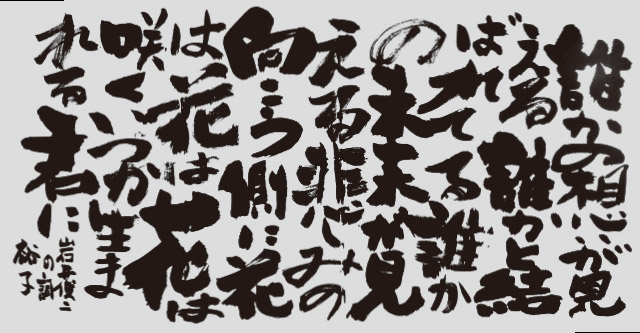 誰かの想いが見
える誰かと結
ばれてる誰か
の未来が見
える悲しみの
向こう側に花
は花は花は
咲くいつか生ま
れる君に
岩井俊二
の詞
裕子